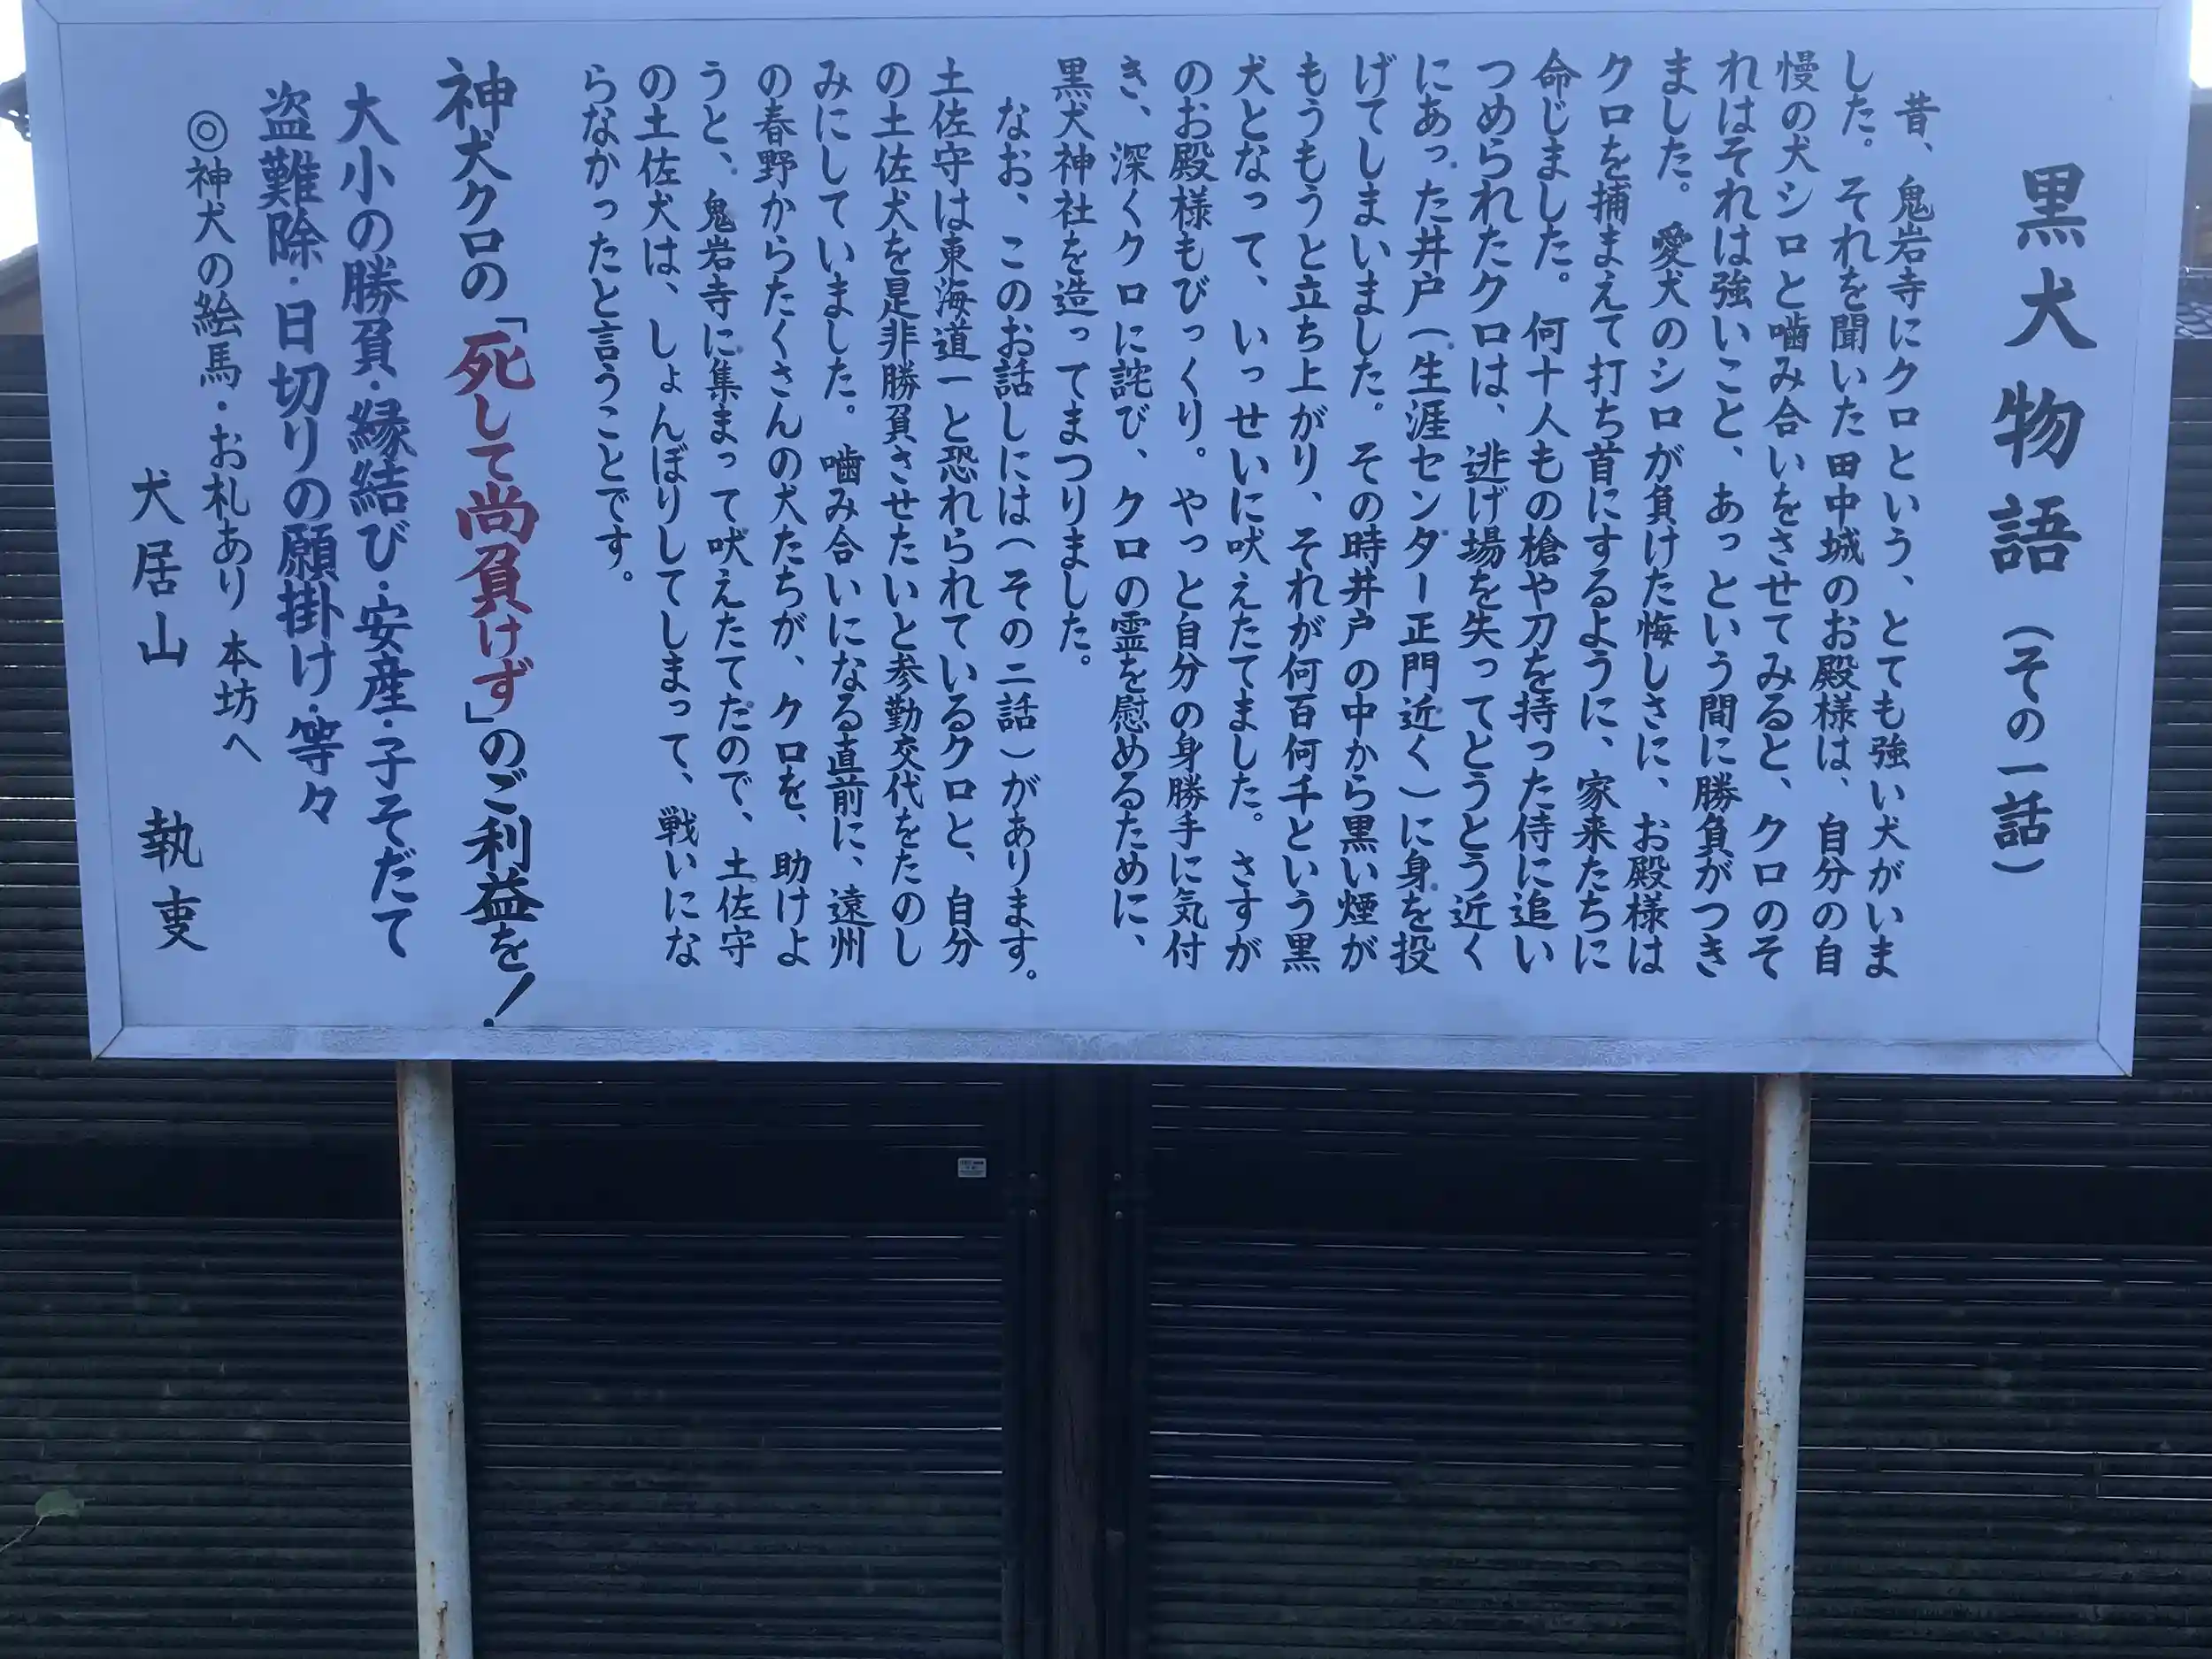 黒犬物語（その一話）
昔、鬼岩寺にクロという、とても強い犬がいま
した。それを聞いた田中城のお殿様は、自分の自
慢の犬シロと噛み合いをさせてみると、クロのそ
れはそれは強いこと、あっという間に勝負がつき
ました。愛犬のシロが負けた悔しさに、お殿様は
クロを捕まえて打ち首にするように、家来たちに
命じました。何十人もの槍や刀を持った侍に追い
つめられたクロは、逃げ場を失ってとうとう近く
にあった井戸（生涯センター正門近く）に身を投
げてしまいました。その時井戸の中から黒い煙が
もうもうと立ち上がり、それが何百何千という黒
犬となって、いっせいに吠えたてました。さすが
のお殿様もびっくり。やっと自分の身勝手に気付
き、深くクロに詫び、クロの霊を慰めるために、
黒犬神社を造ってまつりました。
なお、このお話しには（その二話）があります。
土佐守は東海道一と恐れられているクロと、自分
の土佐犬を是非勝負させたいと参勤交代をたのし
みにしていました。噛み合いになる直前に、遠州
の春野からたくさんの犬たちが、クロを、助けよ
うと、鬼岩寺に集まって吠えたてたので、土佐守
の土佐犬は、しょんぼりしてしまって、戦いにな
らなかったと言うことです。
神犬クロの「死して尚負けず」のご利益を！
大小の勝負・縁結び・安産・子そだて
盗難除・日切りの願掛け・等々
◎神犬の絵馬・お札あり 本坊へ
犬居山 執事